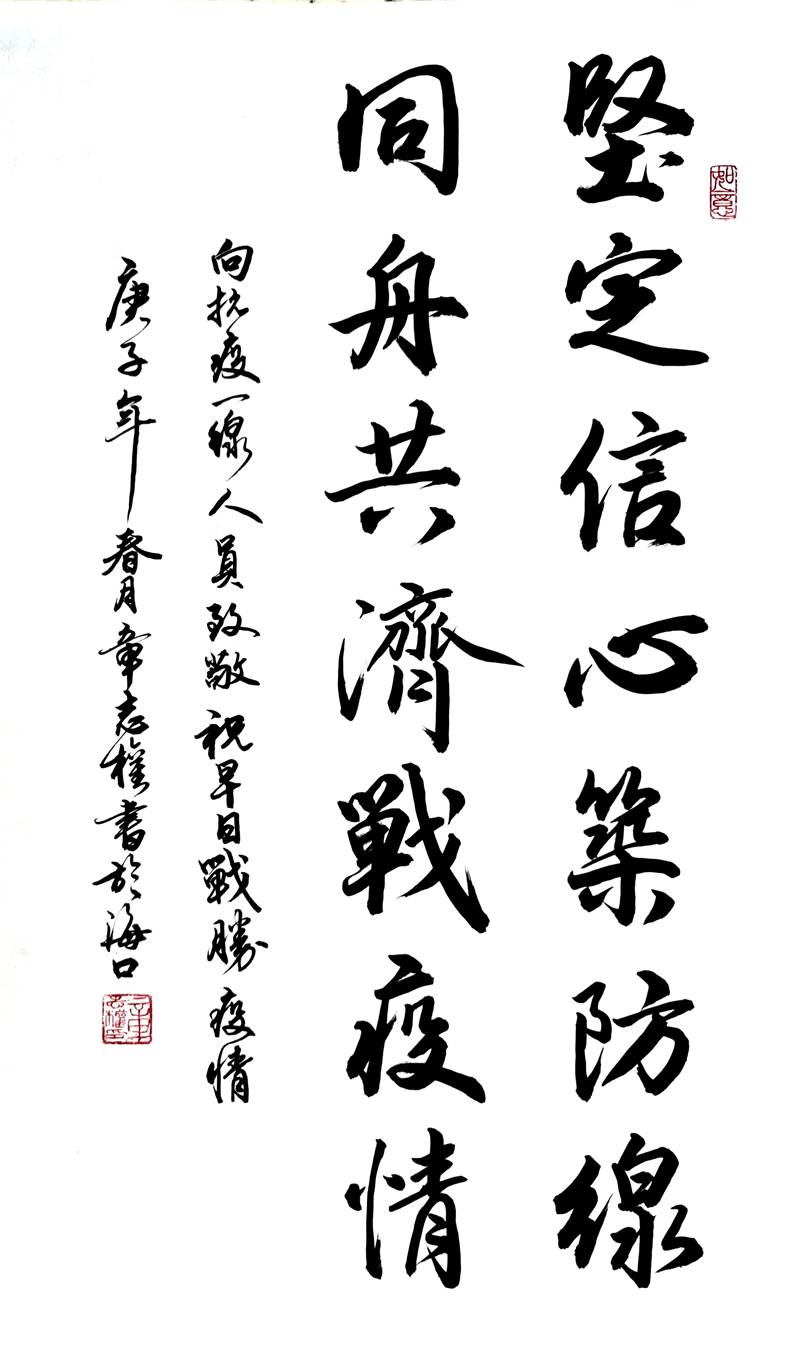 堅定信心築防線
同舟共濟戰疫情
向抗疫一線人員致敬祝早日戰勝疫情
庚子年春月章志權書於海口
如意
章志權印